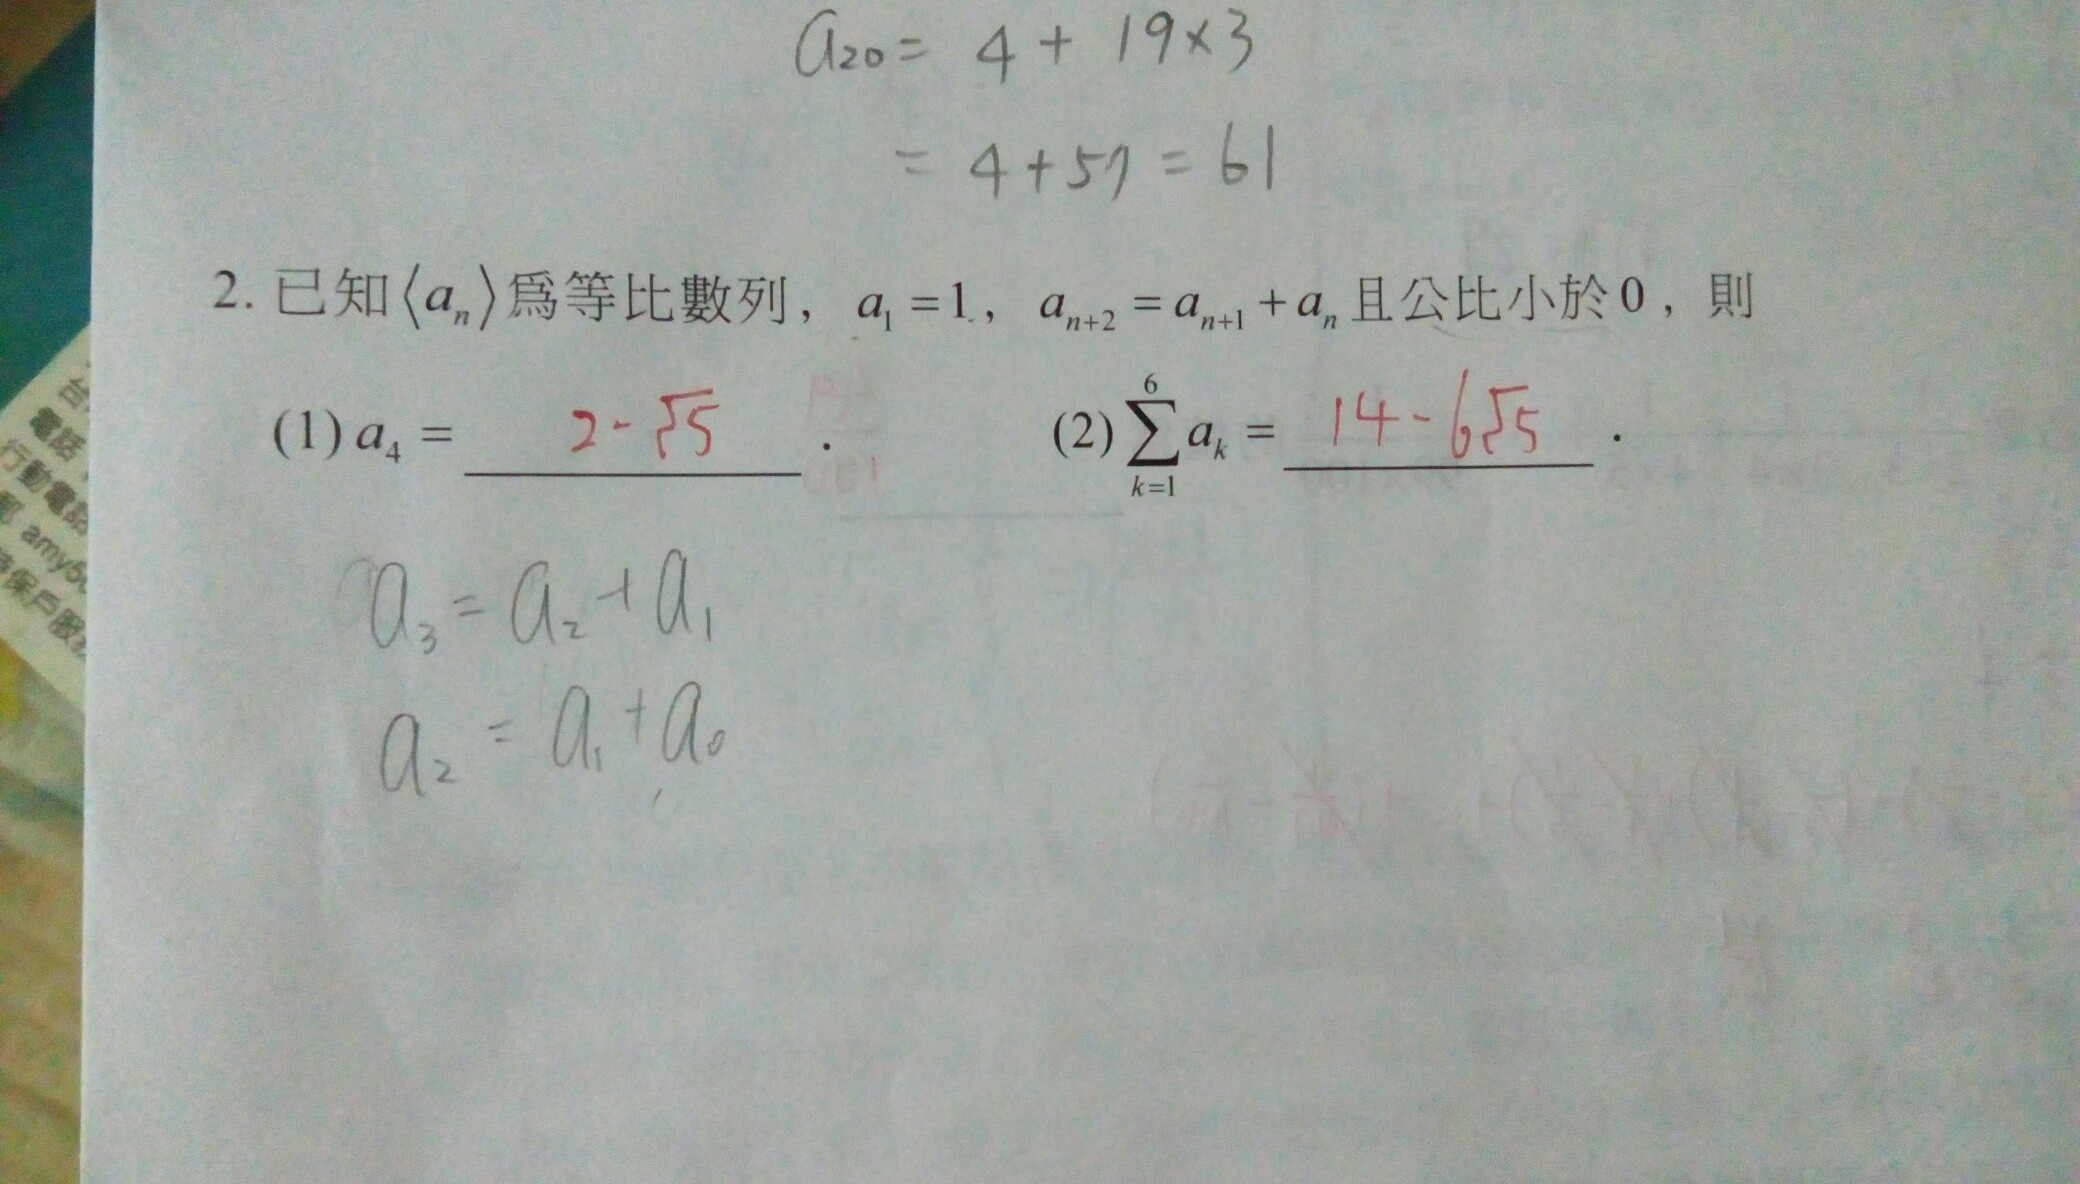 a₂₀ = 4 + 19×3
= 4 + 57 = 61
2. 已知⟨aₙ⟩爲等比數列，a₁ = 1，aₙ₊₂ = aₙ₊₁ + aₙ 且公比小於 0，則
(1) a₄ = 2-√5 . (2) ∑ₖ₌₁⁶ aₖ = 14-6√5 .
a₃ = a₂ + a₁
a₂ = a₁ + a₀
電話
行動電話
amy5
保戶服